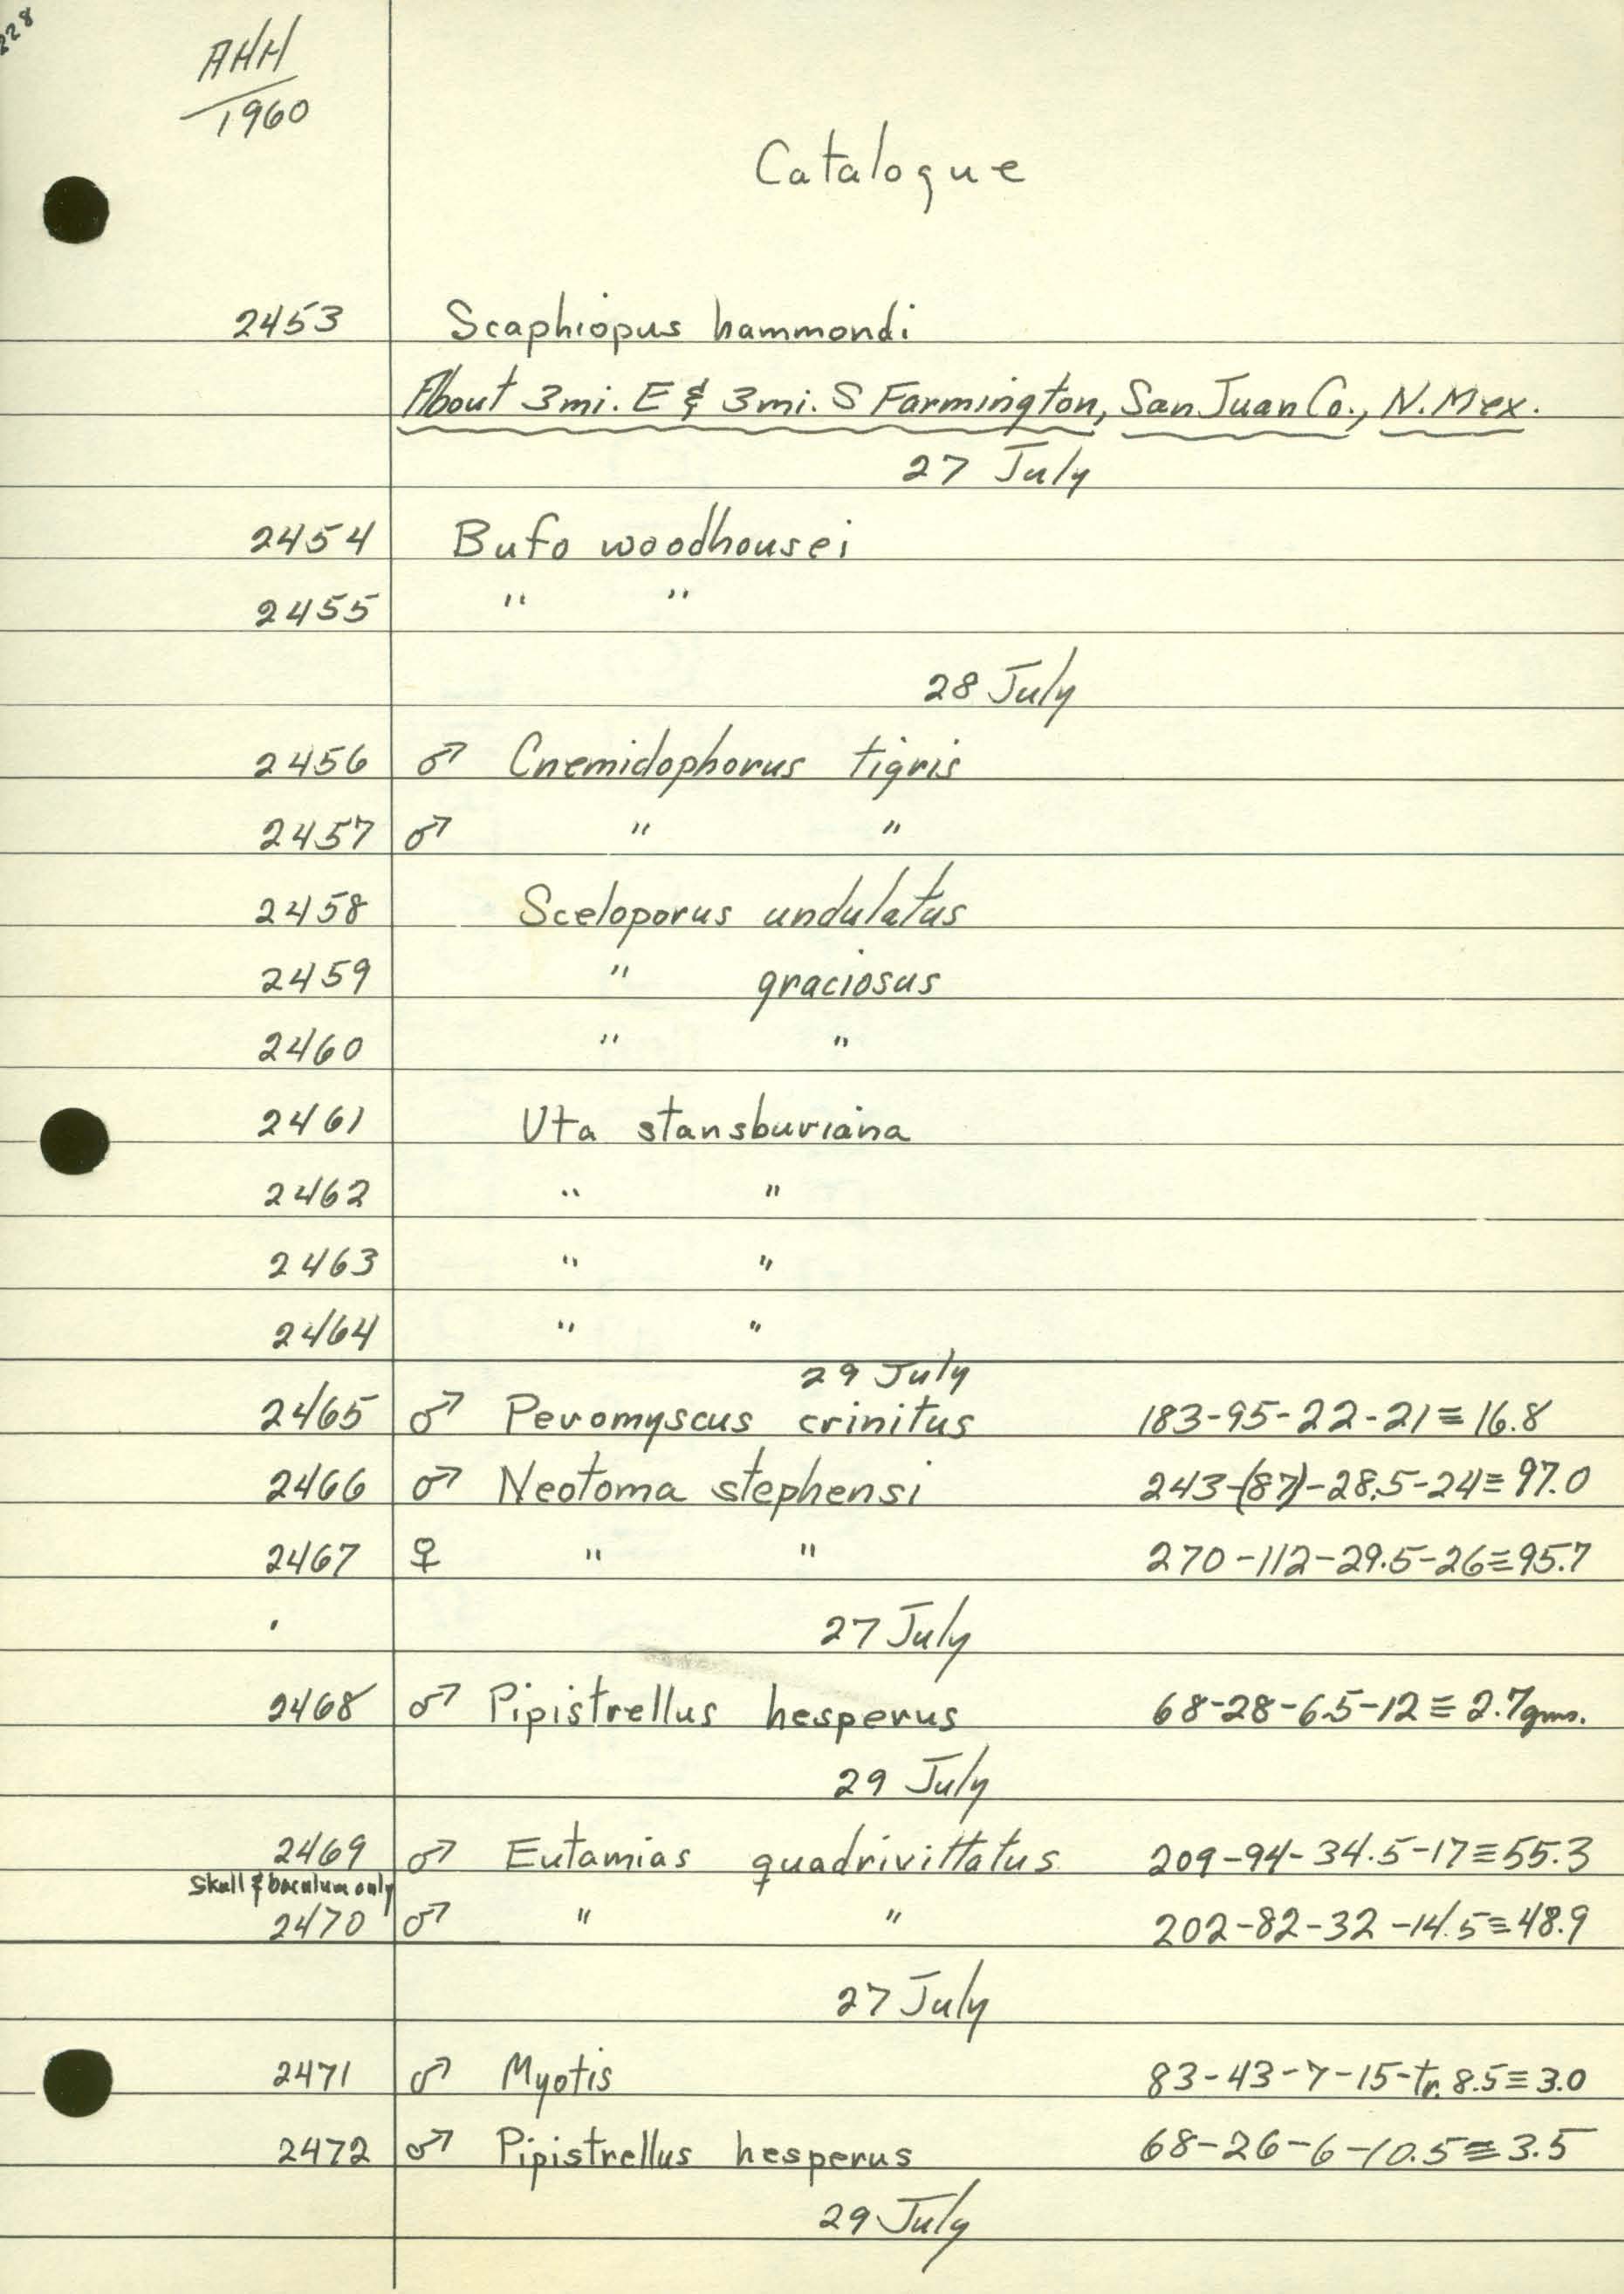 228
AHH
1960
Catalogue
2453 Scaphiopus hammondi
About 3mi. E & 3mi. S Farmington, San Juan Co., N. Mex.
27 July
2454 Bufo woodhousei
2455 " "
28 July
2456 ♂ Cnemidophorus tigris
2457 ♂ " "
2458 Sceloporus undulatus
2459 " graciosus
2460 " "
2461 Uta stansburiana
2462 " "
2463 " "
2464 " "
29 July
2465 ♂ Peromyscus crinitus 183-95-22-21≡16.8
2466 ♂ Neotoma stephensi 243-(87)-28.5-24≡97.0
2467 ♀ " " 270-112-29.5-26≡95.7
27 July
2468 ♂ Pipistrellus hesperus 68-28-6.5-12≡2.7gms.
29 July
2469 ♂ Eutamias quadrivittatus 209-94-34.5-17≡55.3
Skull & baculum only
2470 ♂ " " 202-82-32-14.5≡48.9
27 July
2471 ♂ Myotis 83-43-7-15-tr. 8.5≡3.0
2472 ♂ Pipistrellus hesperus 68-26-6-10.5≡3.5
29 July